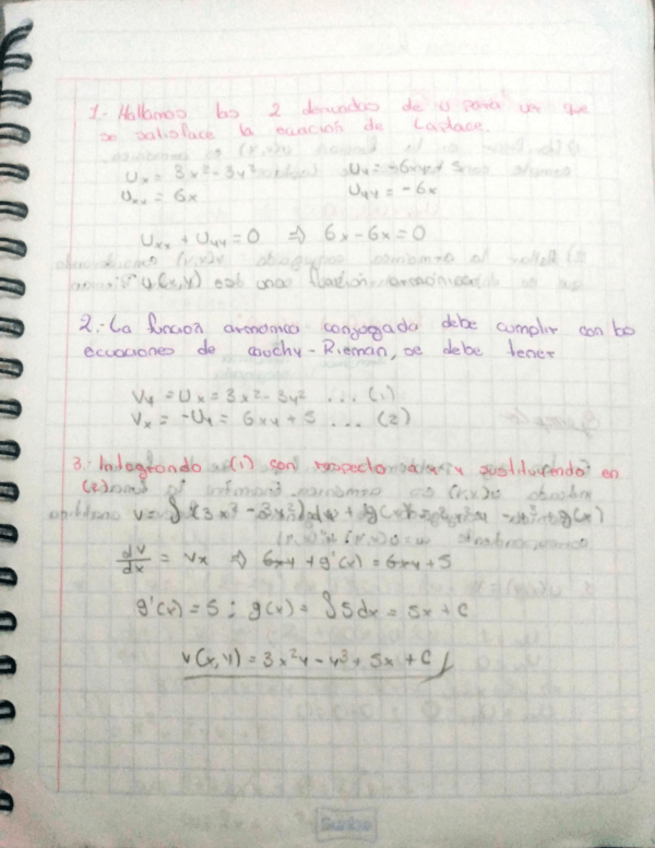 1.- Hallamos las 2 derivadas de u para ver que
se satisface la ecuación de Laplace.
Ux = 3x² - 3y² Uy = -6xy - 5
Uxx = 6x Uyy = -6x
Uxx + Uyy = 0 ⇒ 6x - 6x = 0
∴ u(x,y) es una función armónica
2.- La función armonica conjugada debe cumplir con las
ecuaciones de cauchy - Rieman, se debe tener
Vy = Ux = 3x² - 3y² ... (1)
Vx = -Uy = 6xy + 5 ... (2)
3.- Integrando (1) con respecto a y sustituyendo en
(2)
v = ∫(3x² - 3y²)dy + g(x) = 3x²y - y³ + g(x)
dv/dx = Vx ⇒ 6xy + g'(x) = 6xy + 5
g'(x) = 5 ; g(x) = ∫5dx = 5x + C
v(x,y) = 3x²y - y³ + 5x + C